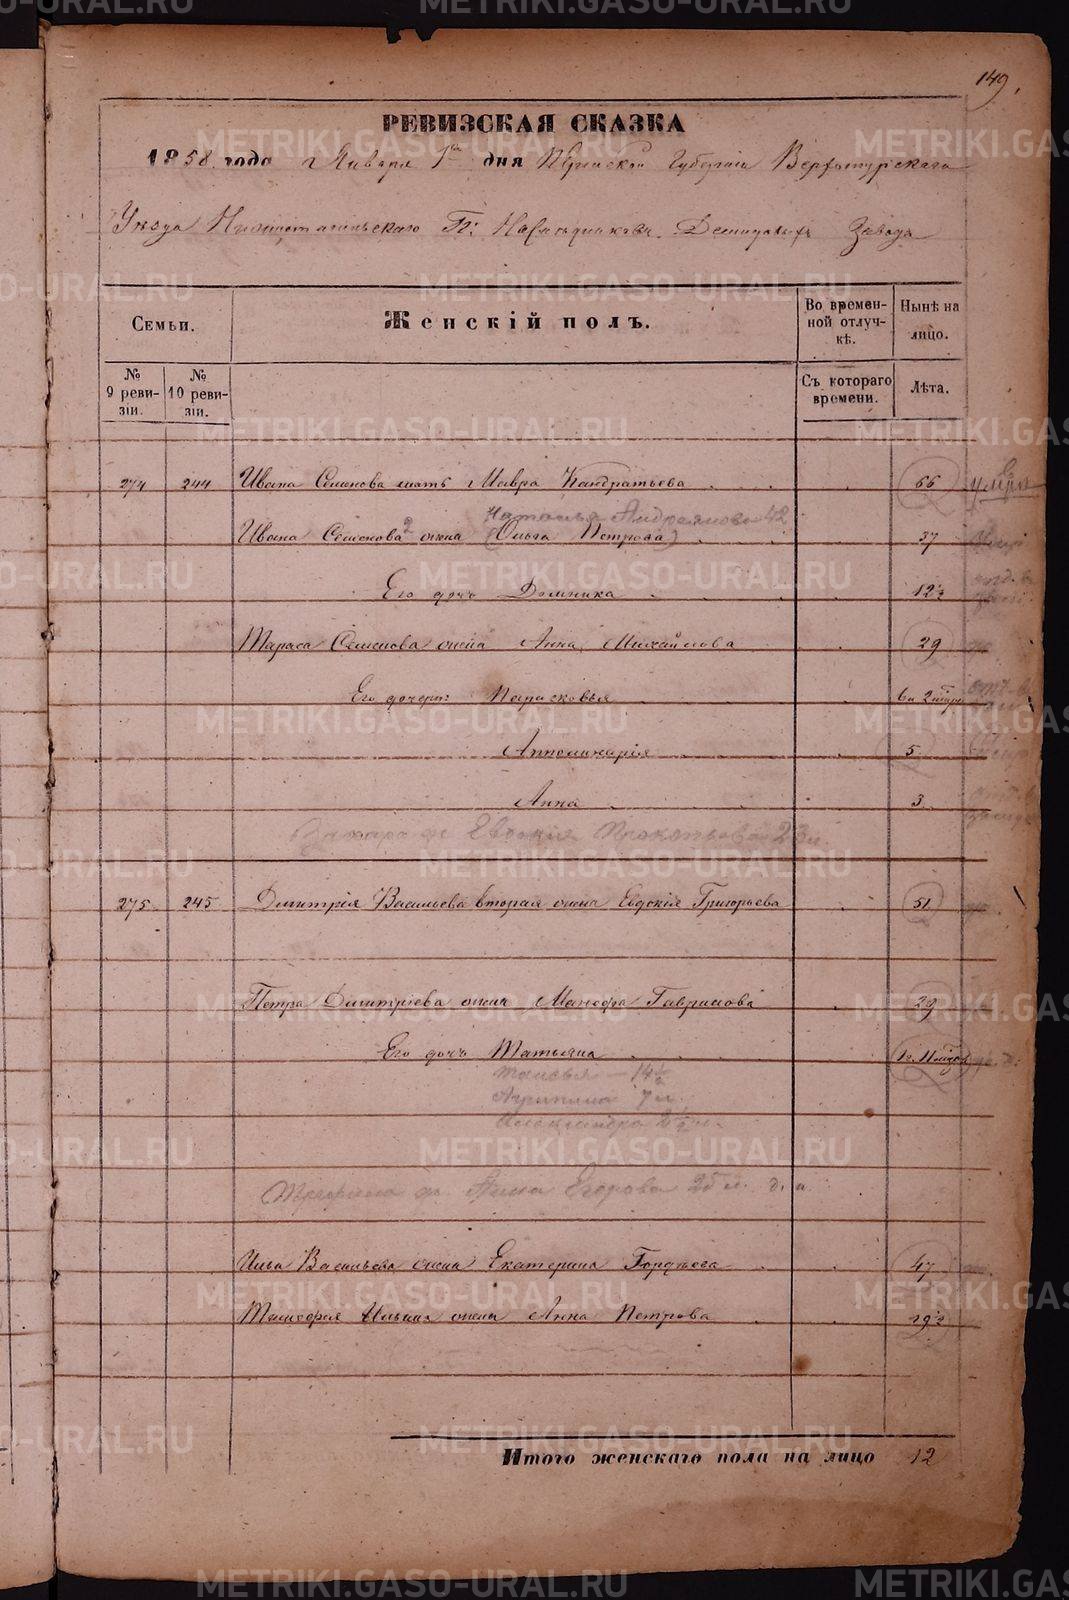 149.
РЕВИЗСКАЯ СКАЗКА
1858 года Января 1го дня Пермской Губерніи Верхотурскаго
Уѣзда Нижнетагильскаго Гг: Наслѣдниковъ Демидовыхъ Завода
Семьи.
Женскій полъ.
Во времен-
ной отлуч-
кѣ.
Нынѣ на
лицо.
№
9 реви-
зіи.
№
10 реви-
зіи.
Съ котораго
времени.
Лѣта.
274 244 Ивана Семенова мать Мавра Кандратьева 66 умер.
Наталья Андреянова 42
Ивана Семенова 2 жена (Ольга Петрова) 37
Его дочь Домника 12½
Тараса Семенова жена Анна Михайлова 29
Его дочери: Парасковья
Апполинарія 5
Анна 3
Захара ж Евдокія Прокопьева 23
275 245 Дмитрія Васильева вторая жена Евдокія Григорьева 51
Петра Дмитріева жена Манефа Гаврилова 29
Его дочь Татьяна
Таисья — 14½
Агрипина 7 л.
Александра 2½ л.
Трефила ж. Анна Егорова 25 л.
Ильи Васильева жена Екатерина Гордѣева 47
Тимофея Ильина жена Анна Петрова 19½
Итого женскаго пола на лицо 12
METRIKI.GASO-URAL.RU